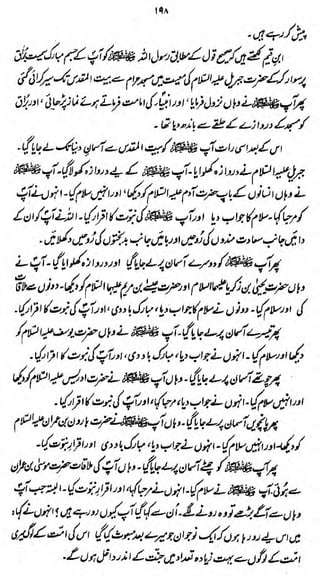 ۱۹۸
پیش کر رہے ہیں۔
ابن قیم لکھتے ہیں کہ صحیح قول کے مطابق رسول اللہ ﷺ کو آپ کے جسم مبارک سمیت بُراق
پر سوار کر کے حضرت جبریل علیہ السلام کی معیت میں مسجد حرام سے بیت المقدس تک سیر کرائی گئی
پھر آپ ﷺ نے وہاں نزول فرمایا، اور انبیاء کی امامت فرماتے ہوئے نماز پڑھائی، اور براق
کو مسجد کے دروازے کے حلقے سے باندھ دیا تھا۔
اس کے بعد اسی رات آپ ﷺ کو بیت المقدس سے آسمان دنیا تک لے جایا گیا۔
جبریل علیہ السلام نے دروازہ کھلوایا۔ آپ ﷺ کے لیے دروازہ کھولا گیا۔ آپ
نے وہاں انسانوں کے باپ حضرت آدم علیہ السلام کو دیکھا، اور انہیں سلام کیا۔ انہوں نے آپ
کو مرحبا کہا۔ سلام کا جواب دیا اور آپ ﷺ کی نبوت کا اقرار کیا۔ اللہ نے آپ کو ان کے
دائیں جانب سعادت مندوں کی روحیں اور بائیں جانب بدبختوں کی روحیں دکھلائیں۔
پھر آپ ﷺ کو دوسرے آسمان پر لے جایا گیا اور دروازہ کھلوایا گیا۔ آپ نے
وہاں حضرت یحییٰ بن زکریا علیہما السلام اور حضرت عیسیٰ بن مریم علیہما السلام کو دیکھا۔ دونوں سے ملاقات
کی اور سلام کیا۔ دونوں نے سلام کا جواب دیا، مبارک باد دی، اور آپ کی نبوت کا اقرار کیا۔
پھر تیسرے آسمان پر لے جایا گیا۔ آپ ﷺ نے وہاں حضرت یوسف علیہ السلام کو
دیکھا اور سلام کیا۔ انہوں نے جواب دیا، مبارک باد دی، اور آپ کی نبوت کا اقرار کیا۔
پھر چوتھے آسمان پر لے جایا گیا۔ وہاں آپ ﷺ نے حضرت ادریس علیہ السلام کو دیکھا
اور انہیں سلام کیا۔ انہوں نے جواب دیا، مرحبا کہا، اور آپ کی نبوت کا اقرار کیا۔
پھر پانچویں آسمان پر لے جایا گیا۔ وہاں آپ ﷺ نے حضرت ہارون بن عمران علیہ السلام
کو دیکھا۔ اور انہیں سلام کیا۔ انہوں نے جواب دیا، مبارک باد دی اور اقرار نبوت کیا۔
پھر آپ ﷺ کو چھٹے آسمان پر لے جایا گیا۔ وہاں آپ کی ملاقات حضرت موسیٰ بن عمران
سے ہوئی۔ آپ ﷺ نے سلام کیا۔ انہوں نے مرحبا کہا، اور اقرار نبوت کیا۔ البتہ جب آپ
وہاں سے آگے بڑھے تو وہ رونے لگے۔ ان سے کہا گیا آپ کیوں رو رہے ہیں؟ انہوں نے کہا:
میں اس لیے رو رہا ہوں کہ ایک نوجوان جو میرے بعد مبعوث کیا گیا اس کی امت کے لوگ میری
امت کے لوگوں سے بہت زیادہ تعداد میں جنت کے اندر داخل ہوں گے۔